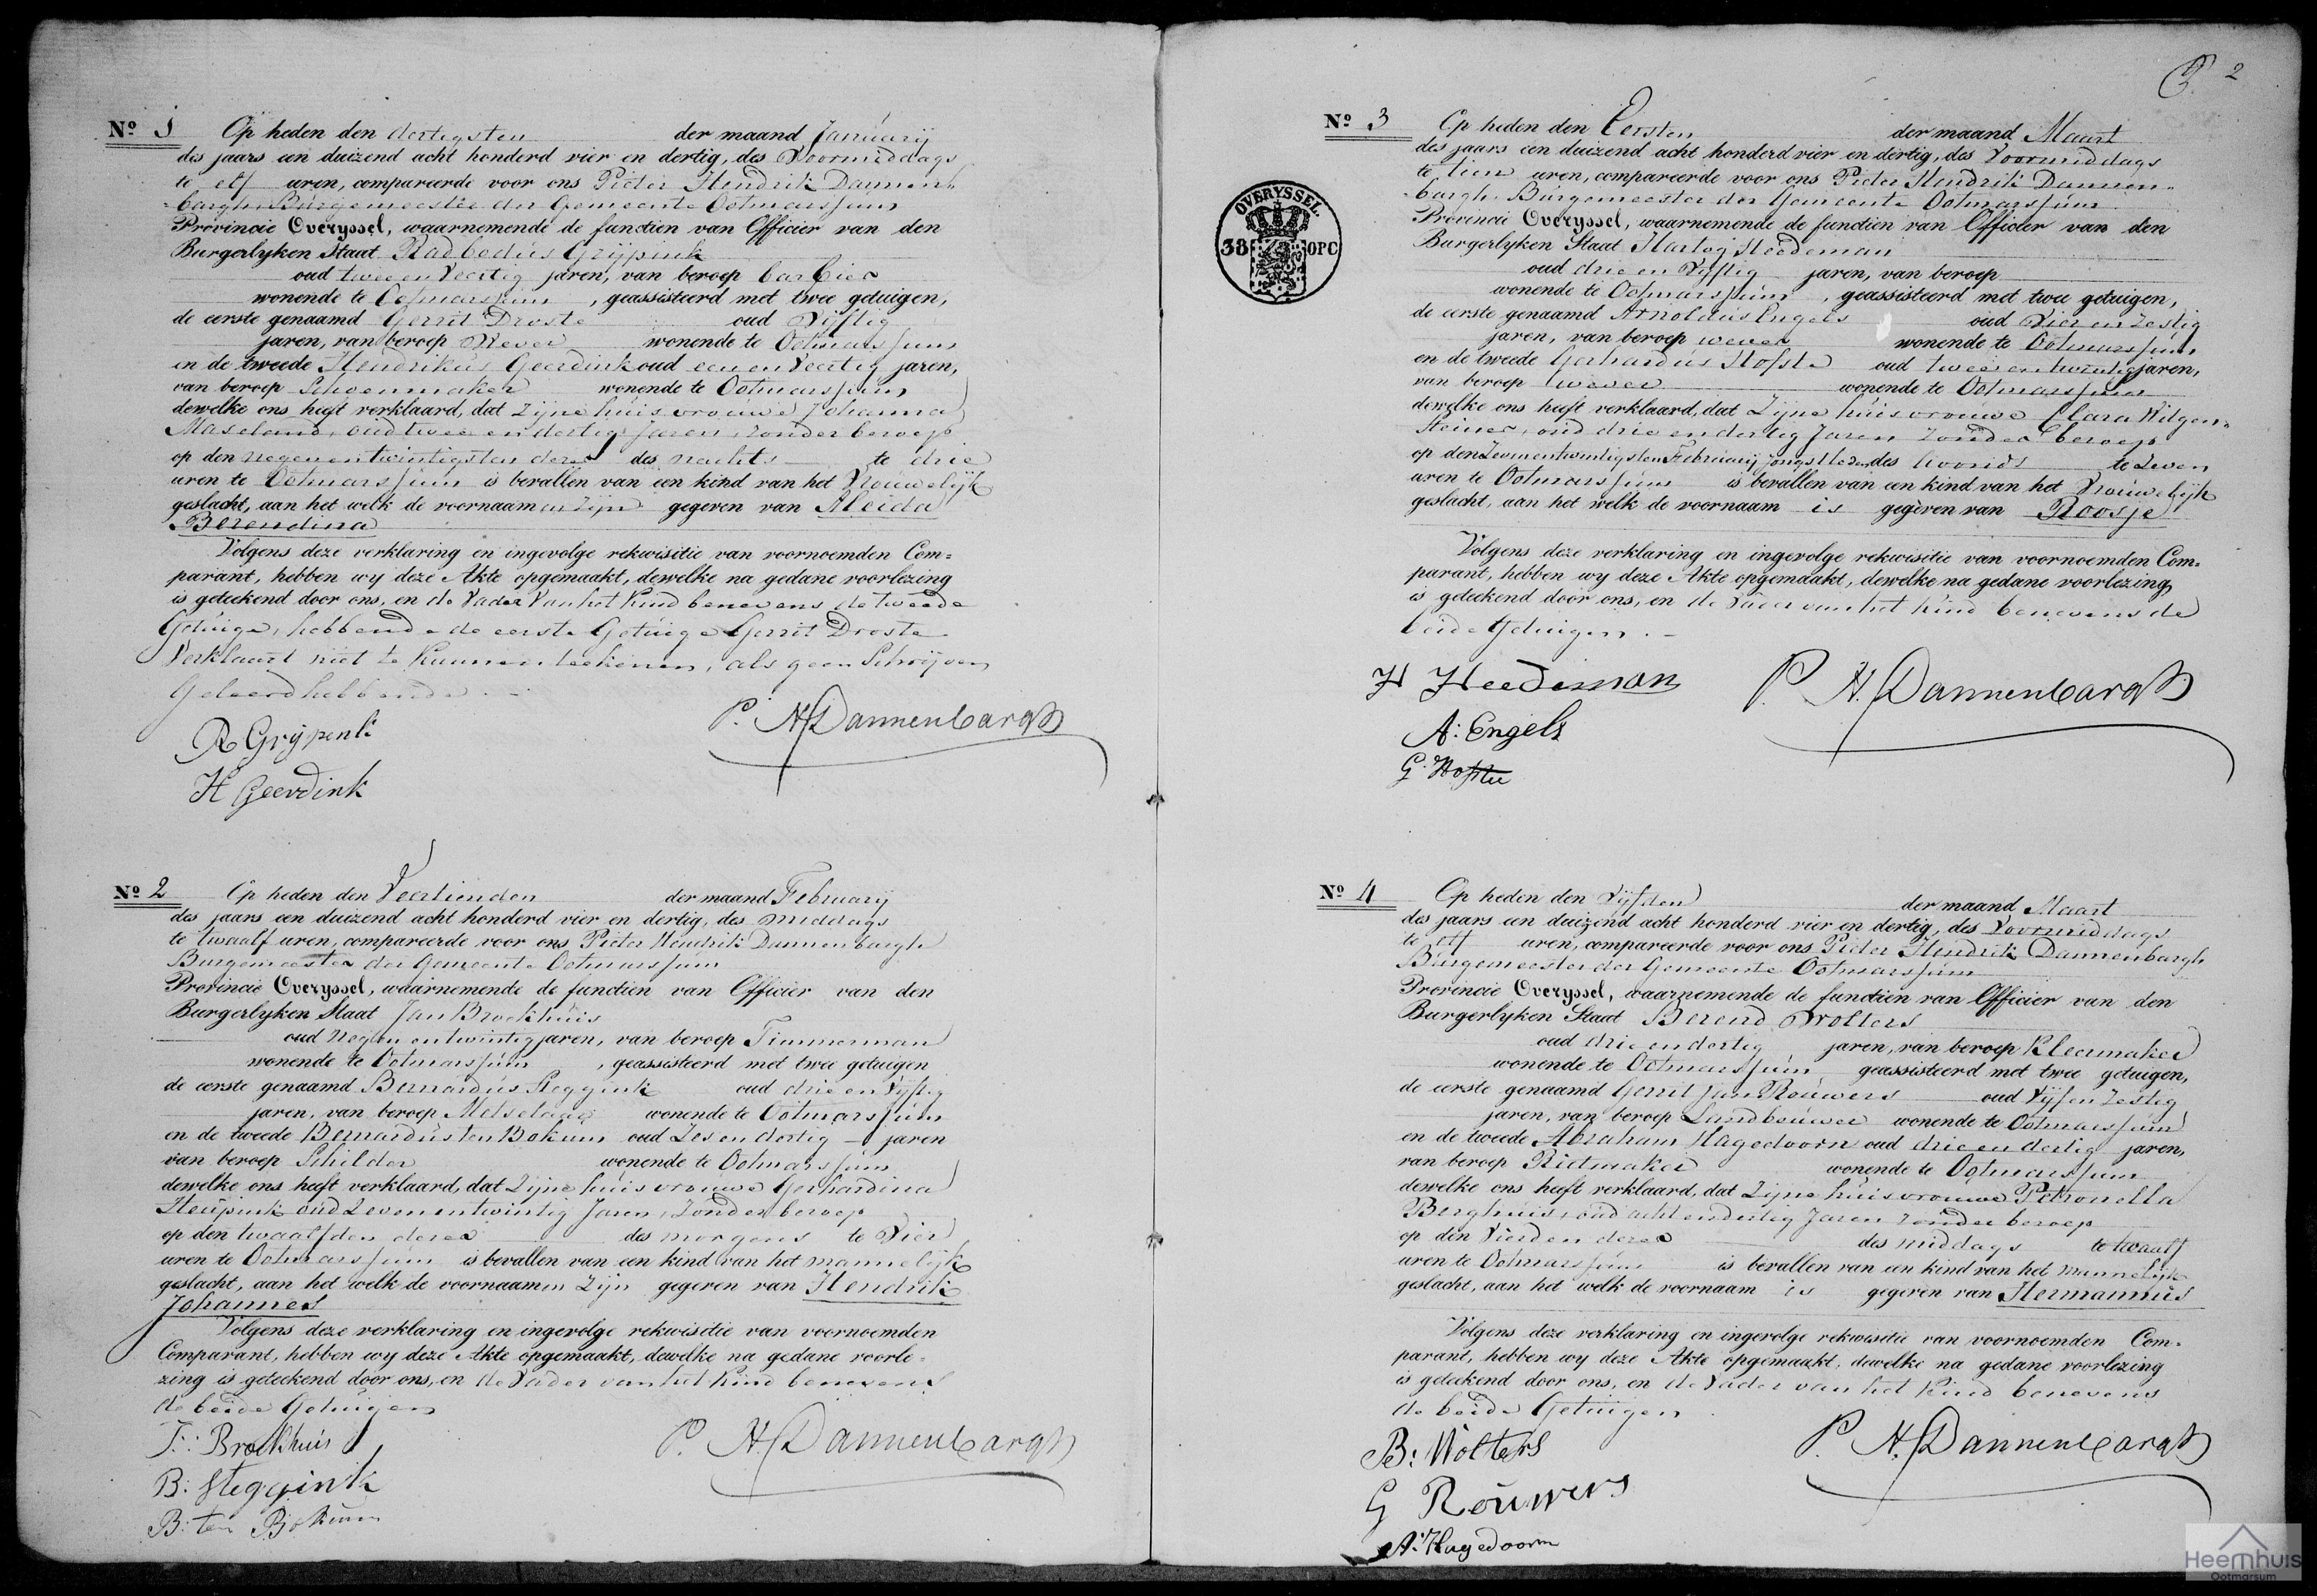 Nº 1 Op heden den dertigsten der maand Januarij
des jaars een duizend acht honderd vier en dertig, des Voormiddags
te elf uren, compareerde voor ons Pieter Hendrik Dannen
bargh Burgemeester der Gemeente Ootmarssum
Provincie Overyssel, waarnemende de functien van Officier van den
Burgerlyken Staat Radbodus Grijpink
oud twee en Veertig jaren, van beroep barbier
wonende te Ootmarssum, geassisteerd met twee getuigen,
de eerste genaamd Gerrit Droste oud Vijftig
jaren, van beroep Wever wonende te Ootmarssum
en de tweede Hendrikus Geerdink oud een en Veertig jaren,
van beroep Schoenmaker wonende te Ootmarssum
dewelke ons heeft verklaard, dat zijne huisvrouwe Johanna
Maseland, oud twee en dertig Jaren, zonder beroep
op den negenentwintigsten dezer des nachts te drie
uren te Ootmarssum is bevallen van een kind van het Vrouwelijk
geslacht, aan het welk de voornaamen zijn gegeven van Aleida
Berendina
Volgens deze verklaring en ingevolge rekwisitie van voornoemden Com=
parant, hebben wy deze Akte opgemaakt, dewelke na gedane voorlezing
is geteekend door ons, en de Vader van het Kind benevens de tweede
Getuige, hebbende de eerste Getuige Gerrit Droste
Verklaart niet te kunnen teekenen, als geen Schrijven
Geleerd hebbende.
R Grijpink
P. H. Dannenbargh
H Geerdink
Nº 2 Op heden den Veertienden der maand Februarij
des jaars een duizend acht honderd vier en dertig, des middags
te twaalf uren, compareerde voor ons Pieter Hendrik Dannenbargh
Burgemeester der Gemeente Ootmarssum
Provincie Overyssel, waarnemende de functien van Officier van den
Burgerlyken Staat Jan Broekhuis
oud negen en twintig jaren, van beroep Timmerman
wonende te Ootmarssum, geassisteerd met twee getuigen
de eerste genaamd Bernardus Steggink oud drie en Vijftig
jaren, van beroep Metselaar wonende te Ootmarssum
en de tweede Bernardus ten Bokum oud Zes en dertig jaren
van beroep Schilder wonende te Ootmarssum
dewelke ons heeft verklaard, dat Zijne huisvrouwe Gerhardina
Heupink oud Zeven en twintig Jaren, Zonder beroep
op den twaalfden dezer des morgens te Vier
uren te Ootmarssum is bevallen van een kind van het mannelijk
geslacht, aan het welk de voornaamen Zijn gegeven van Hendrik
Johannes
Volgens deze verklaring en ingevolge rekwisitie van voornoemden
Comparant, hebben wy deze Akte opgemaakt, dewelke na gedane voorle=
zing is geteekend door ons, en de Vader van het Kind benevens
de beide Getuigen
J: Broekhuis
P. H. Dannenbargh
B: Steggink
B: ten Bokum
2
Nº 3 Op heden den Eersten der maand Maart
des jaars een duizend acht honderd vier en dertig, des Voormiddags
te tien uren, compareerde voor ons Pieter Hendrik Dannen=
bargh Burgemeester der Gemeente Ootmarssum
Provincie Overyssel, waarnemende de functien van Officier van den
Burgerlyken Staat Hartog Heedeman
oud drie en Vijftig jaren, van beroep
wonende te Ootmarssum, geassisteerd met twee getuigen,
de eerste genaamd Arnoldus Engels oud Vier en Zestig
jaren, van beroep wever wonende te Ootmarssum
en de tweede Gerhardus Hofste oud twee en twintig jaren,
van beroep wever wonende te Ootmarssum
dewelke ons heeft verklaard, dat Zijne huisvrouwe Clara Wilgen=
Steiner, oud drie en dertig Jaren Zonder beroep
op den Zevenentwintigsten Februarij jongstleden des Avonds te Zeven
uren te Ootmarssum is bevallen van een kind van het Vrouwelijk
geslacht, aan het welk de voornaam is gegeven van Roosje
Volgens deze verklaring en ingevolge rekwisitie van voornoemden Com=
parant, hebben wy deze Akte opgemaakt, dewelke na gedane voorlezing
is geteekend door ons, en de Vader van het Kind benevens de
beide Getuigen.
H Heedeman
P. H. Dannenbargh
A: Engels
G: Hofste
OVERYSSEL.
38 OPC
Nº 4 Op heden den Vijfden der maand Maart
des jaars een duizend acht honderd vier en dertig, des Voormiddags
te elf uren, compareerde voor ons Pieter Hendrik Dannenbargh
Burgemeester der Gemeente Ootmarssum
Provincie Overyssel, waarnemende de functien van Officier van den
Burgerlyken Staat Berend Wolters
oud drie en dertig jaren, van beroep Kleermaker
wonende te Ootmarssum geassisteerd met twee getuigen,
de eerste genaamd Gerrit Jan Rouwers oud Vijf en Zestig
jaren, van beroep Landbouwer wonende te Ootmarssum
en de tweede Abraham Hagedoorn oud drie en dertig jaren,
van beroep Rietmaker wonende te Ootmarssum
dewelke ons heeft verklaard, dat Zijne huisvrouwe Petronella
Berghuis, oud acht en dertig Jaren zonder beroep
op den Vierden dezer des middags te twaalf
uren te Ootmarssum is bevallen van een kind van het mannelijk
geslacht, aan het welk de voornaam is gegeven van Hermannus
Volgens deze verklaring en ingevolge rekwisitie van voornoemden Com=
parant, hebben wy deze Akte opgemaakt, dewelke na gedane voorlezing
is geteekend door ons, en de Vader van het Kind benevens
de beide Getuigen
B: Wolters
P. H. Dannenbargh
G Rouwers
A: Hagedoorn
Heemhuis
Ootmarsum